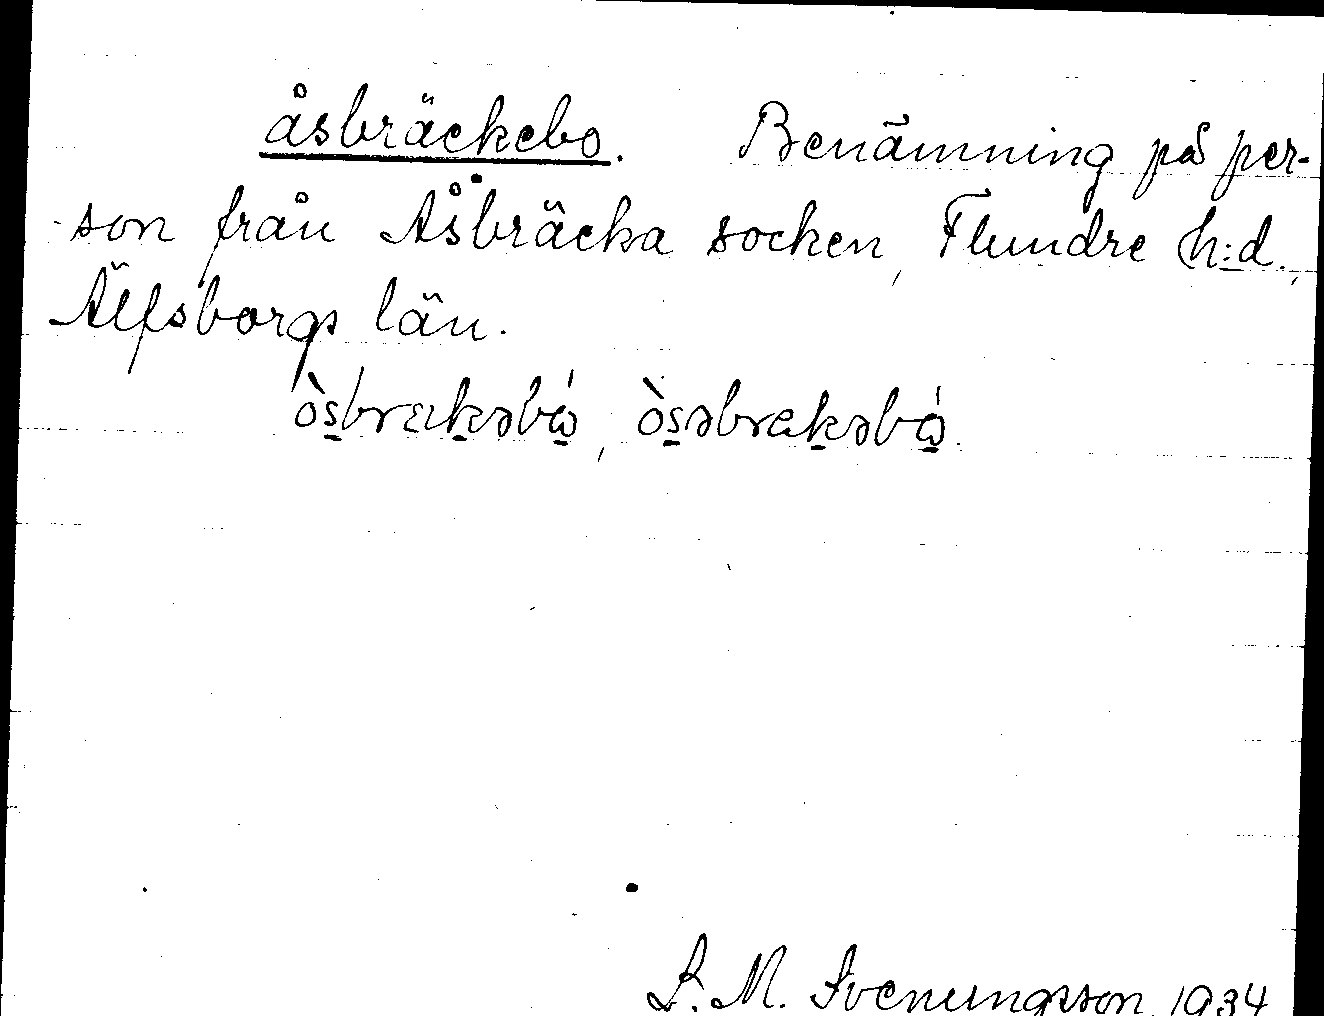 åsbräckebo. Benämning på per-
son från Åsbräcka socken, Flundre h:d.,
Älfsborgs län.
òsbrakəbó, òsəbrakəbó.
S. M. Svenungsson 1934